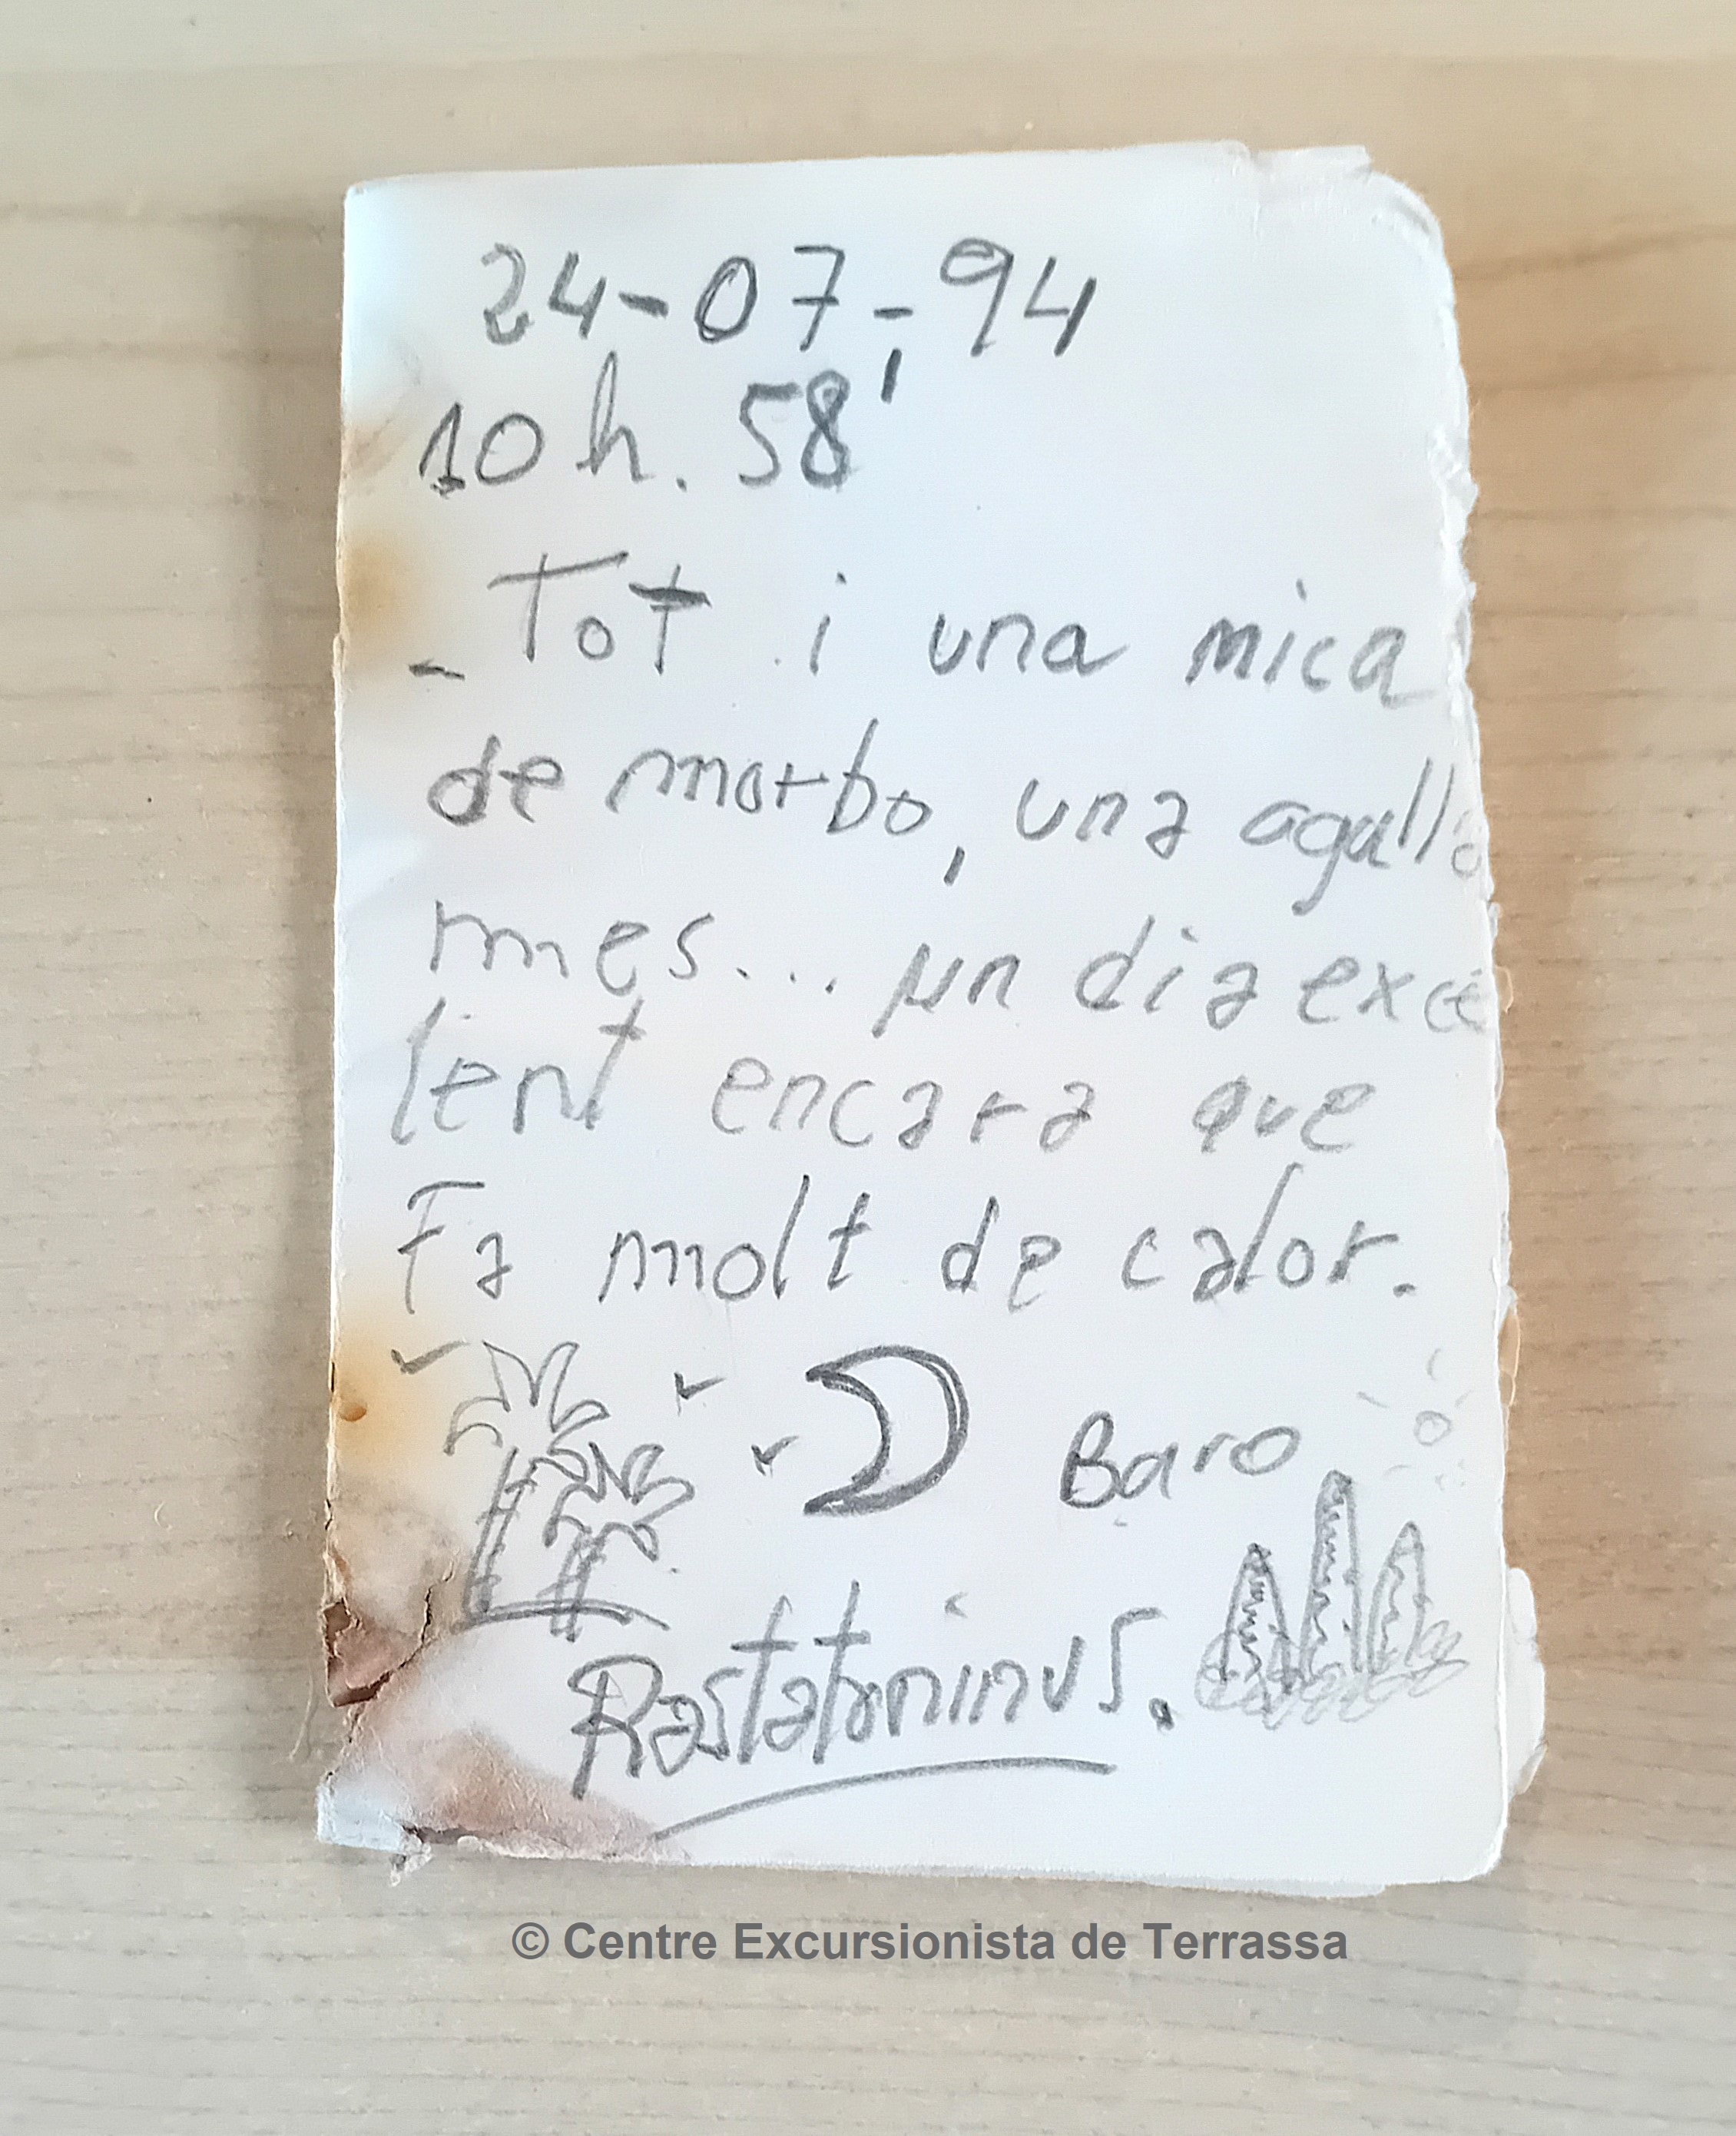 24-07-94
10 h. 58'
- Tot i una mica
de morbo, una agulla
mes... un dia exce
lent encara que
Fa molt de calor.
Baro
Rastatoninus.
© Centre Excursionista de Terrassa